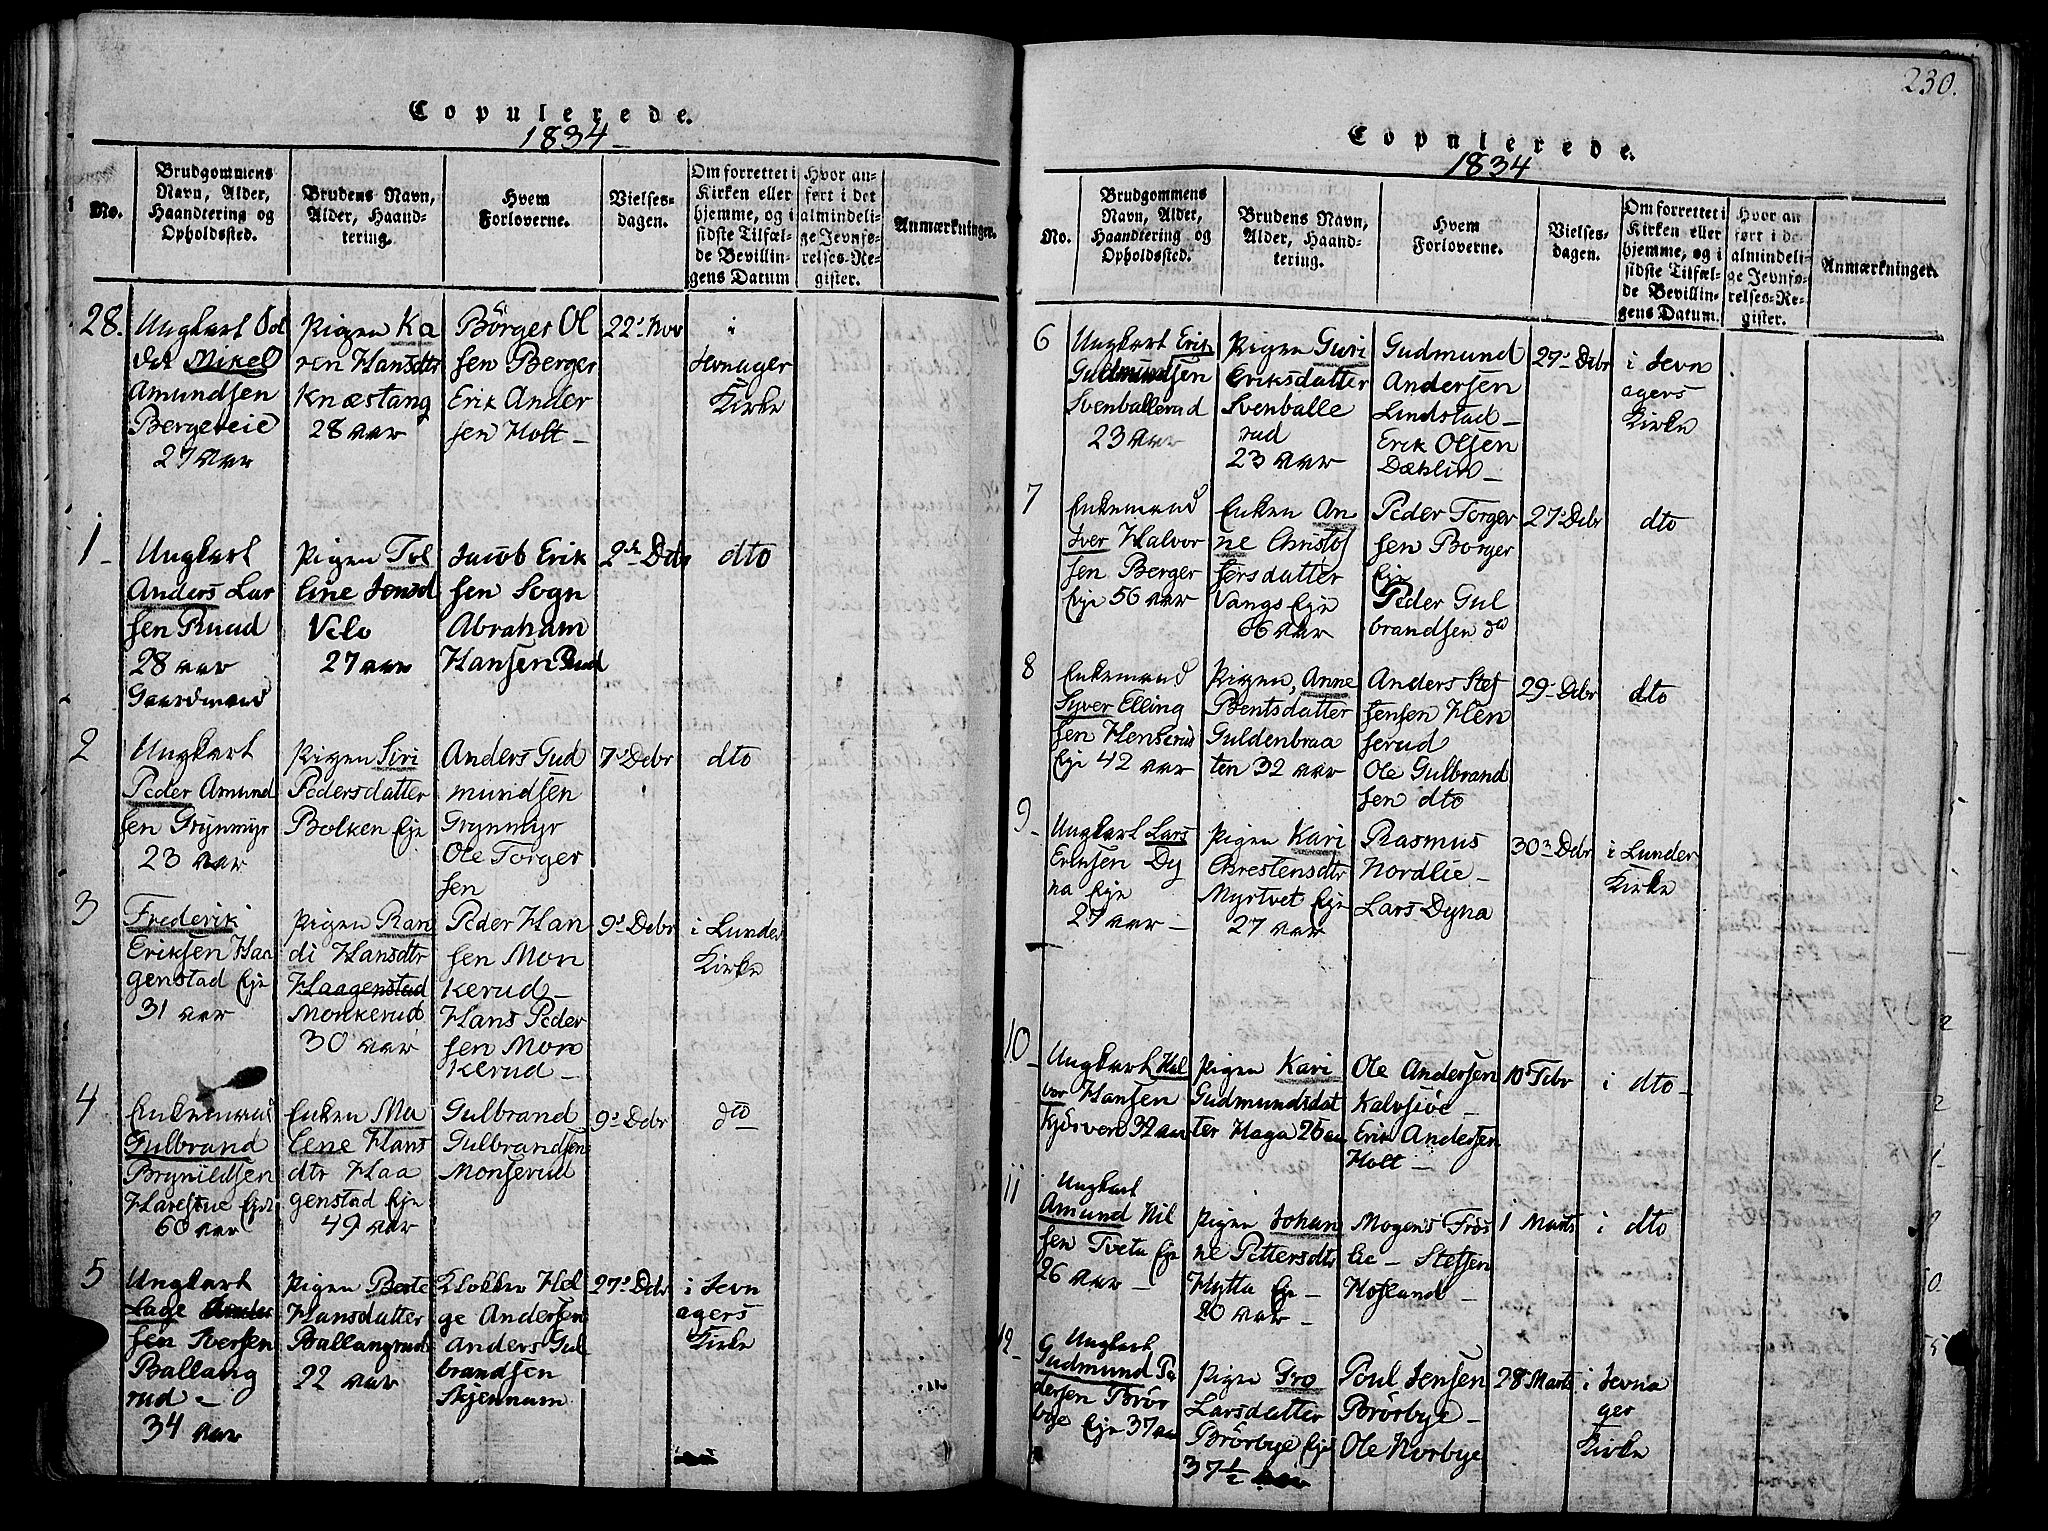 Copulerede.
1834
No.
Brudgommens
Navn, Alder,
Haandtering og
Opholdssted.
Brudens Navn,
Alder, Haand-
tering.
Hvem
Forloverne.
Vielses-
dagen.
Om forrettet i
Kirken eller
hjemme, og i
sidste Tilfæl-
de Bevillin-
gens Datum
Hvor an-
ført i det
almindeli-
ge Jevnfø-
relses-Re-
gister.
Anmærkninger.
28.
Ungkarl Sol
dat Mikel
Amundsen
Bergereie
27 aar
Pigen Ka
ren Hansdtr
Knæstang
28 aar
Börger Ol
sen Berger
Erik Ander
sen Holt
22 Nov
i
Jevnager
Kirke
1
Ungkarl
Anders Lar
sen Ruud
28 aar
Gaardmand
Pigen Tol
Velo
27 aar
Jacob Erik
sen Sogn
Abraham
Hansen Ruud
2 Debr
dto
2
Ungkarl
Peder Amund
sen Grynmyr
23 aar
Pigen Siri
Pedersdatter
Bolken Eje
Anders Gud
mundsen
Grynmyr
Ole Torger
sen
7 Debr
dto
3
Frederik
Eriksen Haa
genstad Eje
31 aar
Pigen Ran
di Hansdtr
Haagenstad
Monkerud
30 aar
Peder Han
sen Mon
kerud
Hans Peder
sen Mon
kerud
9 Debr
i Lunder
Kirke
4
Enkemand
Gulbrand
Brynildsen
Harestue Eje
60 aar
Enken Ma
lene Hans
dtr Haa
genstad Eje
49 aar
Gulbrand
Gulbrandsen
Monserud
9 Debr
dto
5
Ungkarl
sen Iversen
Ballang
rud
34 aar
Pigen Berte
Hansdatter
Ballangrud
22 aar
Klokker Hel
ge Andersen
Anders Gul
brandsen
Skjennum
27 Debr
i Jevn
agers
Kirke
230.
Copulerede.
1834
No.
Brudgommens
Navn, Alder,
Haandtering og
Opholdssted.
Brudens Navn,
Alder, Haand-
tering.
Hvem
Forloverne.
Vielses-
dagen.
Om forrettet i
Kirken eller
hjemme, og i
sidste Tilfæl-
de Bevillin-
gens Datum.
Hvor an
ført i de
almindeli-
ge Jevnfø-
relses-Re-
gister.
Anmærkninger.
6
Ungkarl Erik
Gudmundsen
Svenballerud
23 aar
Pigen Guri
Eriksdatter
Svenballe
rud
23 aar
Gudmund
Andersen
Lindstad
Erik Olsen
Dæhlin
27 Debr
i Jevn
agers
Kirke
7
Enkemand
Iver Halvor
sen Berger
Eje 56 aar
Enken An
ne Christof
fersdatter
Vangs Eje
66 aar
Peder Torger
sen Borger
Eje
Peder Gul
brandsen do
27 Debr
dto
8
Enkemand
Syver Elling
sen Henserud
Eje 42 aar
Pigen, Anne
Bentsdatter
Guldenbraa
ten 32 aar
Anders Stef
fensen Hen
serud
Ole Gulbrand
sen dto
29 Debr
dto
9
Ungkarl Lars
Eriksen Dy
na Eje
27 aar
Pigen Kari
Chrestensdtr
Myrtvet Eje
27 aar
Rasmus
Nordlie
Lars Dyna
30 Debr
i Lunder
Kirke
10
Ungkarl Hal
vor Hansen
Kjörven 32 aar
Pigen Kari
Gudmundsdat
ter Haga 26 aar
Ole Andersen
Kalvsiöe
Erik Andersen
Holt
10 Febr
i dto
11
Ungkarl
Amund Nil
sen Tveta Eje
26 aar
Pigen Johan
ne Pettersdtr
Hytta Eje
20 aar
Mogens Frös
lie - Steffen
Hofland
1 Marts
i dto
12
Ungkarl
Gudmund Pe
dersen Brör
bye Eje 37 aar
Pigen Gro
Larsdatter
Brörbye Eje
37 1/2 aar
Poul Jensen
Brörbye
Ole Norbye
28 Marts
i Jevna
ger
Kirke